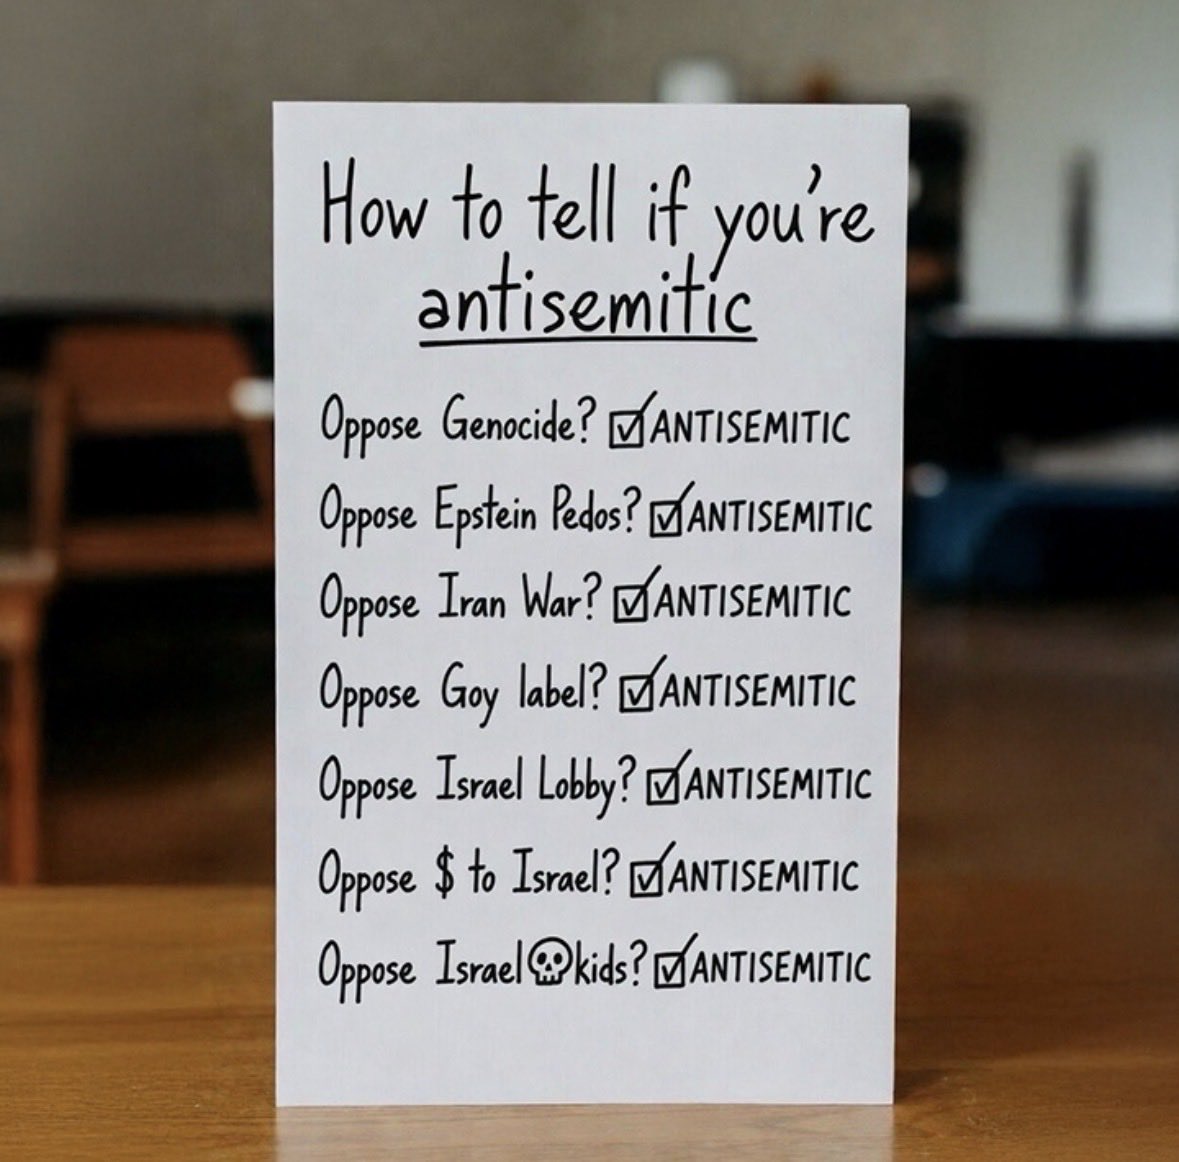 How to tell if you're
antisemitic
Oppose Genocide? ☑ANTISEMITIC
Oppose Epstein Pedos? ☑ANTISEMITIC
Oppose Iran War? ☑ANTISEMITIC
Oppose Goy label? ☑ANTISEMITIC
Oppose Israel Lobby? ☑ANTISEMITIC
Oppose $ to Israel? ☑ANTISEMITIC
Oppose Israel☠kids? ☑ANTISEMITIC